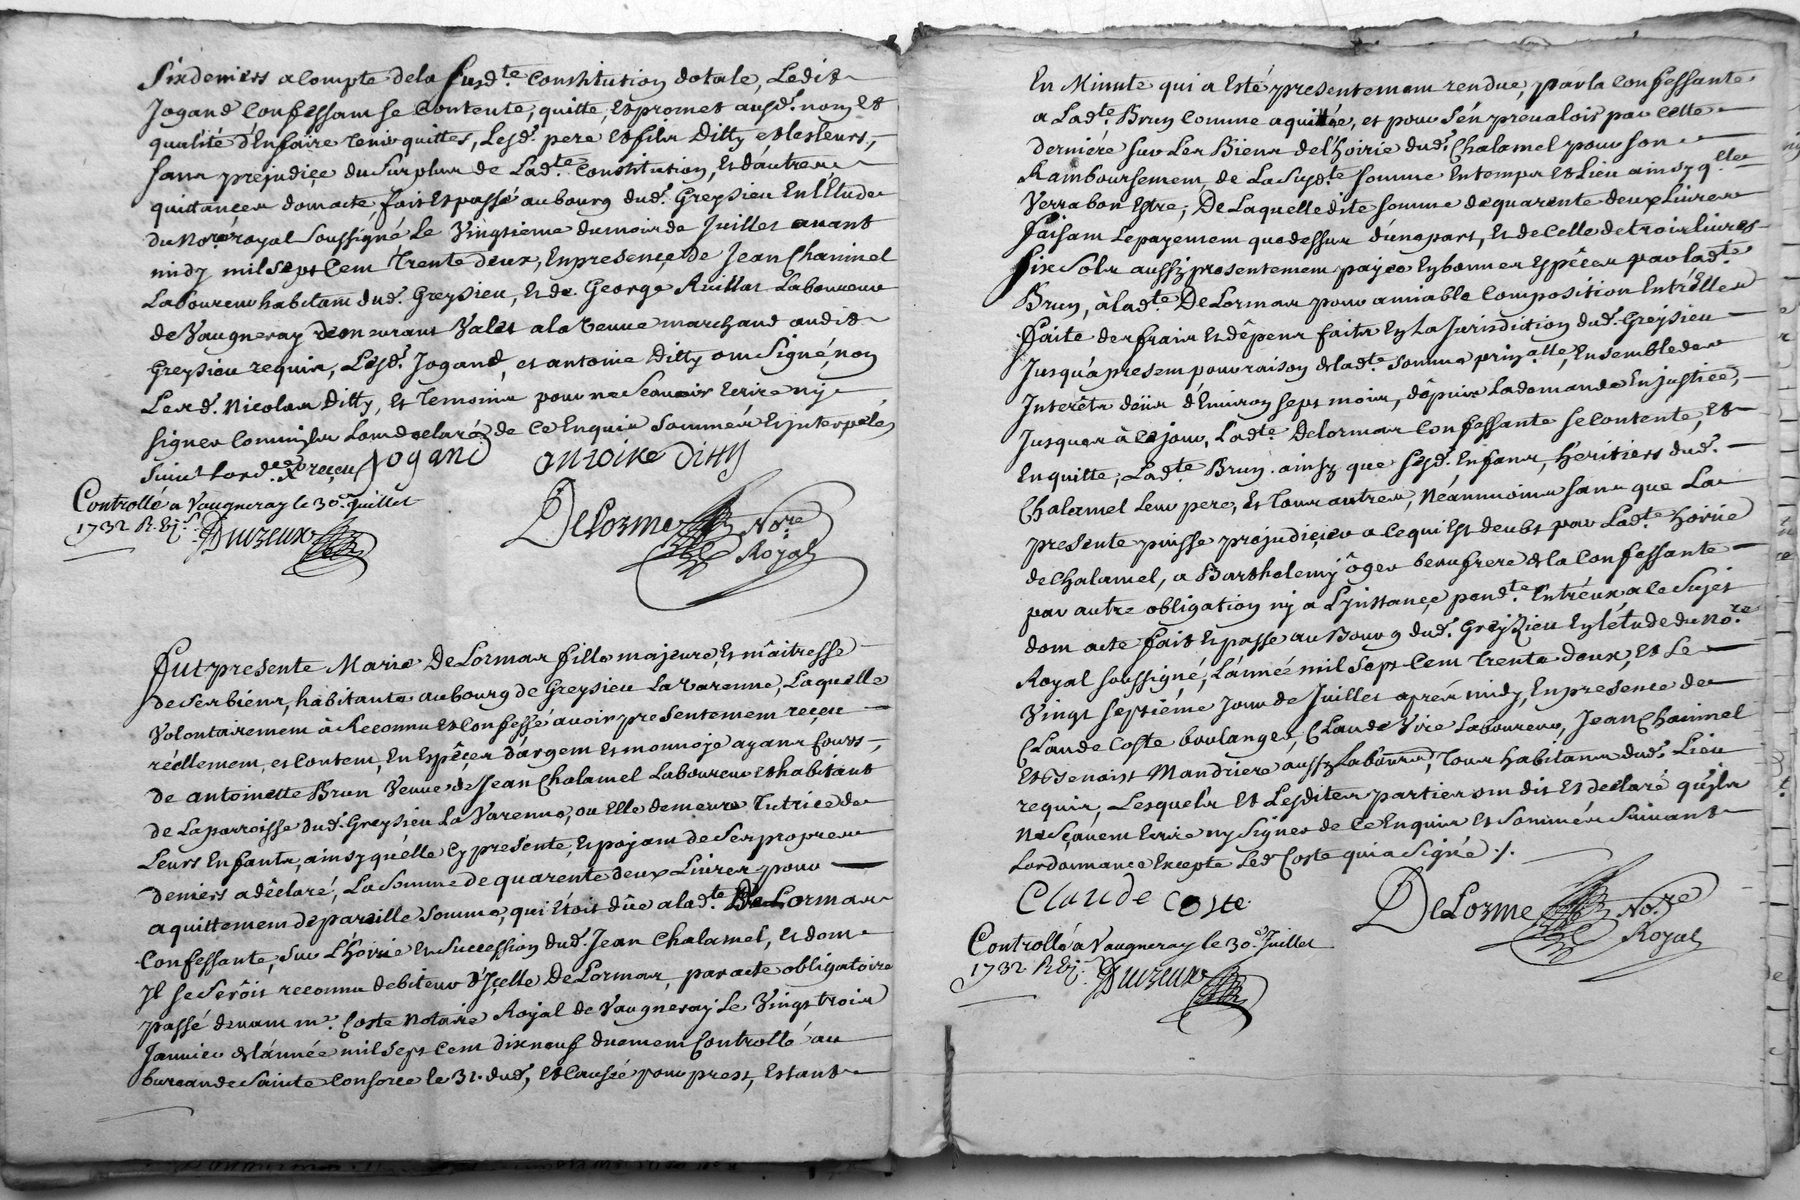 Six deniers a compte de la susd.te Constitution dotale, Ledit
Jogand Confessant se Contente, quitte, Et promet ausd. nom Et
qualité d'En faire tenir quittes, Lesd. pere Et fils Ditty et les leurs,
sans prejudice du surplus de Lad.te Constitution, Et d'autres
quittances dont acte, fait Et passé au bourg dud. Greysieu En l'Etude
du No.re royal soussigné Le Vingtieme du mois de Juillet avant
midy mil sept Cent trente deux, En presence de Jean Chaninel
Laboureur habitant dud. Greysieu, Et de George Ruillat Laboureur
de Vaugneray demeurant Valet a la veuve marchand audit
Greysieu requis, Lesd. Jogand, et antoine Ditty ont Signé, non
Led. Nicolas Ditty, Et temoins pour ne Scavoir Ecrire ny
signer Comm'ils Lont declaré de Ce Enquis Sommés Et interpelés
suiv.t lord.ce
Jogand antoine ditty
Controllé a Vaugneray le 30.e Juillet
1732 R. Duzeux
DeLorme No.re
Royal
Fut presente Marie DeLormas fille majeure, Et maitresse
de Ses biens, habitante au bourg de Greysieu La varenne, Laquelle
Volontairement à Reconnu Et Confessé avoir presentement reçeu
réellement, et Content, En Espêçes d'argent Et monnoje ayant Cours,
de antoinette Brun Veuve de Jean Chalamel Laboureur Et habitant
de La parroisse dud. Greysieu La Varenne, ou Elle demeure tutrice de
Leurs Enfants, ainsy qu'elle Cy presente, Et payant de Ses propres
deniers a déclaré, La Somme de quarente deux Livres pour
aquittement de pareille somme, qui Etoit dûe a lad.te DeLormas
Confessante, sur L'hoirie Et Succession dud. Jean Chalamel, Et dont
Il se serôit reconnu debiteur d'Içelle DeLormas, par acte obligatoire
passé devant m.e Coste Notaire Royal de Vaugneray Le Vingt trois
Janvier de l'année mil sept Cent dix neuf duement Controllé au
bureau de Sainte Consorce le 31. dud., Et Causée pour prest, Estant
En Minute qui a Esté presentement rendue, par la Confessante
a Lad.te Brun Comme aquittée, et pour s'en prevaloir par Cette
derniére sur Les Biens de l'hoirie dud. Chalamel pour son
Ramboursement, de La Susd.te somme En temps Et Lieu ainsy q.lle
Verra bon Estre; De Laquelle dite somme de quarente deux Livres
faisant Le payement que dessus d'une part, Et de Celle de trois livres
six Sols aussy presentement payée En bonnes Espêces par lad.te
Brun, à lad.te DeLormas pour amiable Composition Entr'Elles
faite des frais Et dêpens faits En La Jurisdiction dud. Greysieu
Jusqu'à present pour raison de lad.te Somme prin.alle, Ensemble des
Interêts dûs d'Environ sept mois, dêpuis La demande En justice,
Jusques à Ce jour, Lad.te DeLormas Confessante se Contente, Et
En quitte, Lad.te Brun ainsy que sesd. Enfans, heritiers dud.
Chalamel Leur pere, Et tous autres, Néanmoins sans que La
presente puisse prejudiçier a Ce qui Est deubt par Lad.te hoirie
de Chalamel, a Barthelemy Ôger beaufrere de la Confessante
par autre obligation ny a L'jnstançe pend.te Entr'eux a Ce Sujet
dont acte fait Et passé au Bourg dud. Greyzieu En l'étude du No.re
Royal soussigné, L'année mil Sept Cent trente deux, Et Le
Vingt septiême Jour de Juillet aprés midy, En presence de
Claude Coste boulanger, Claude Vire Laboureur, Jean Chaninel
Et Benoist Mandriere aussy Laboureur, tous habitans dud. Lieu
requis, Lesquels Et Lesdites parties ont dit Et declaré qu'ils
Ne Sçavent Ecrire ny Signer de Ce Enquis Et Sommés Suivant
Lordonnance Excepté Led. Coste qui a Signé ./.
Claude coste
DeLorme No.re
Royal
Controllé a Vaugneray le 30.e Juillet
1732 R. Duzeux